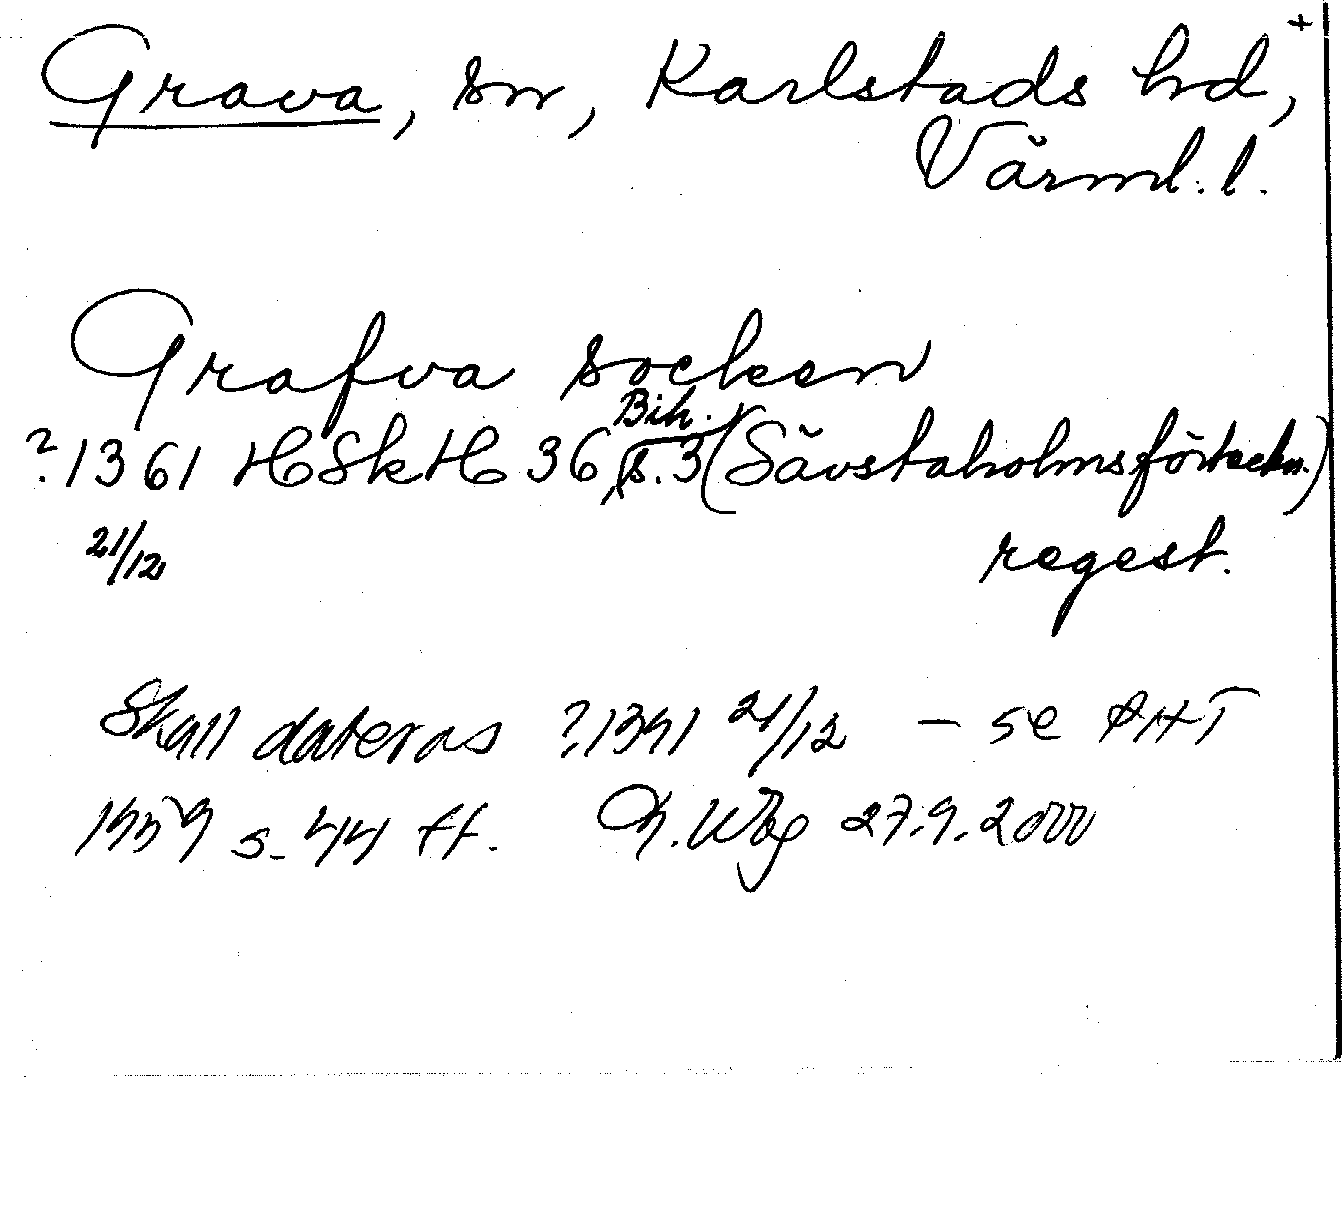 Grava, sn, Karlstads hd, +
Värml. l.
Grafva socken
Bih.
?1361 HSkH 36, s. 3 (Sävstaholmsförteckn.)
21/12 regest.
Skall dateras ?1391 21/12 - se PHT
1959 s. 44 ff. 27.9.2000